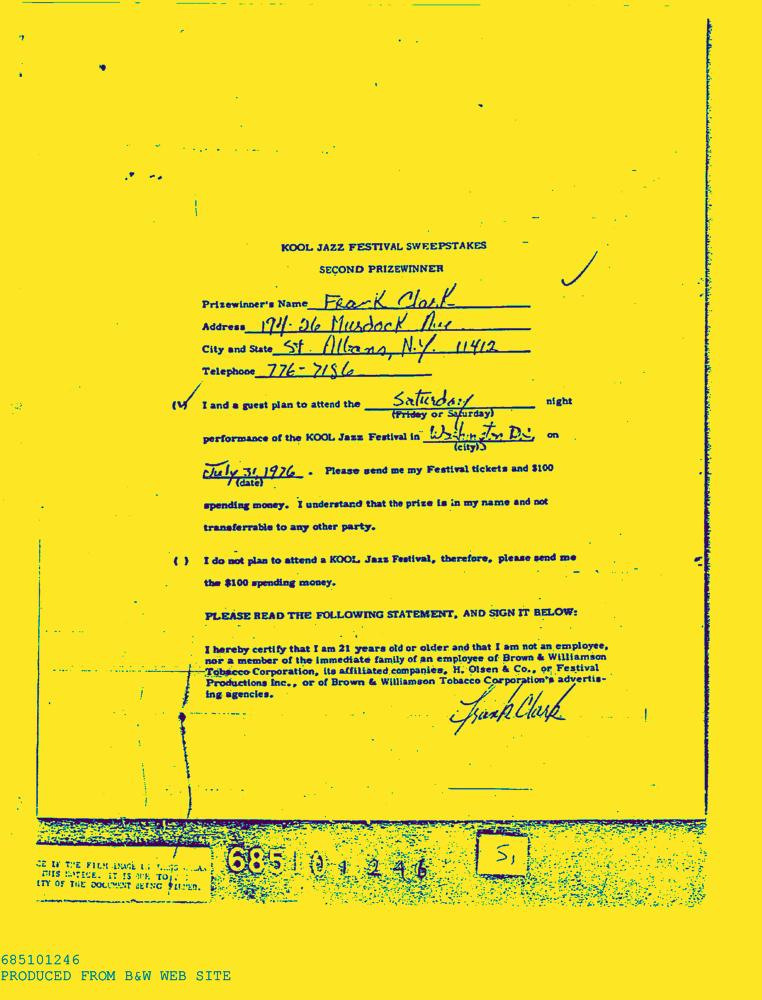 KOOL JAZZ FESTIVAL SWEEPSTAKES
SECOND PRIZEWINNER
Prizewinner's Name Frank Clark
Address 194-26 Murdock Ave
City and State St. Albans, N.Y. 11412
Telephone 776-7186
(✓) I and a guest plan to attend the Saturday night
(Friday or Saturday)
performance of the KOOL Jazz Festival in Washington D.C. on
(city)
July 31, 1976 . Please send me my Festival tickets and $100
(date)
spending money. I understand that the prize is in my name and not
transferrable to any other party.
( ) I do not plan to attend a KOOL Jazz Festival, therefore, please send me
the $100 spending money.
PLEASE READ THE FOLLOWING STATEMENT, AND SIGN IT BELOW:
I hereby certify that I am 21 years old or older and that I am not an employee,
nor a member of the immediate family of an employee of Brown & Williamson
Tobacco Corporation, its affiliated companies, H. Olsen & Co., or Festival
Productions Inc., or of Brown & Williamson Tobacco Corporation's advertis-
ing agencies.
Frank Clark
CE IF THE FILM IMAGE IS
THIS NOTICE. IT IS DUE TO
ITY OF THE DOCUMENT BEING FILMED.
685101246
S,
685101246
PRODUCED FROM B&W WEB SITE